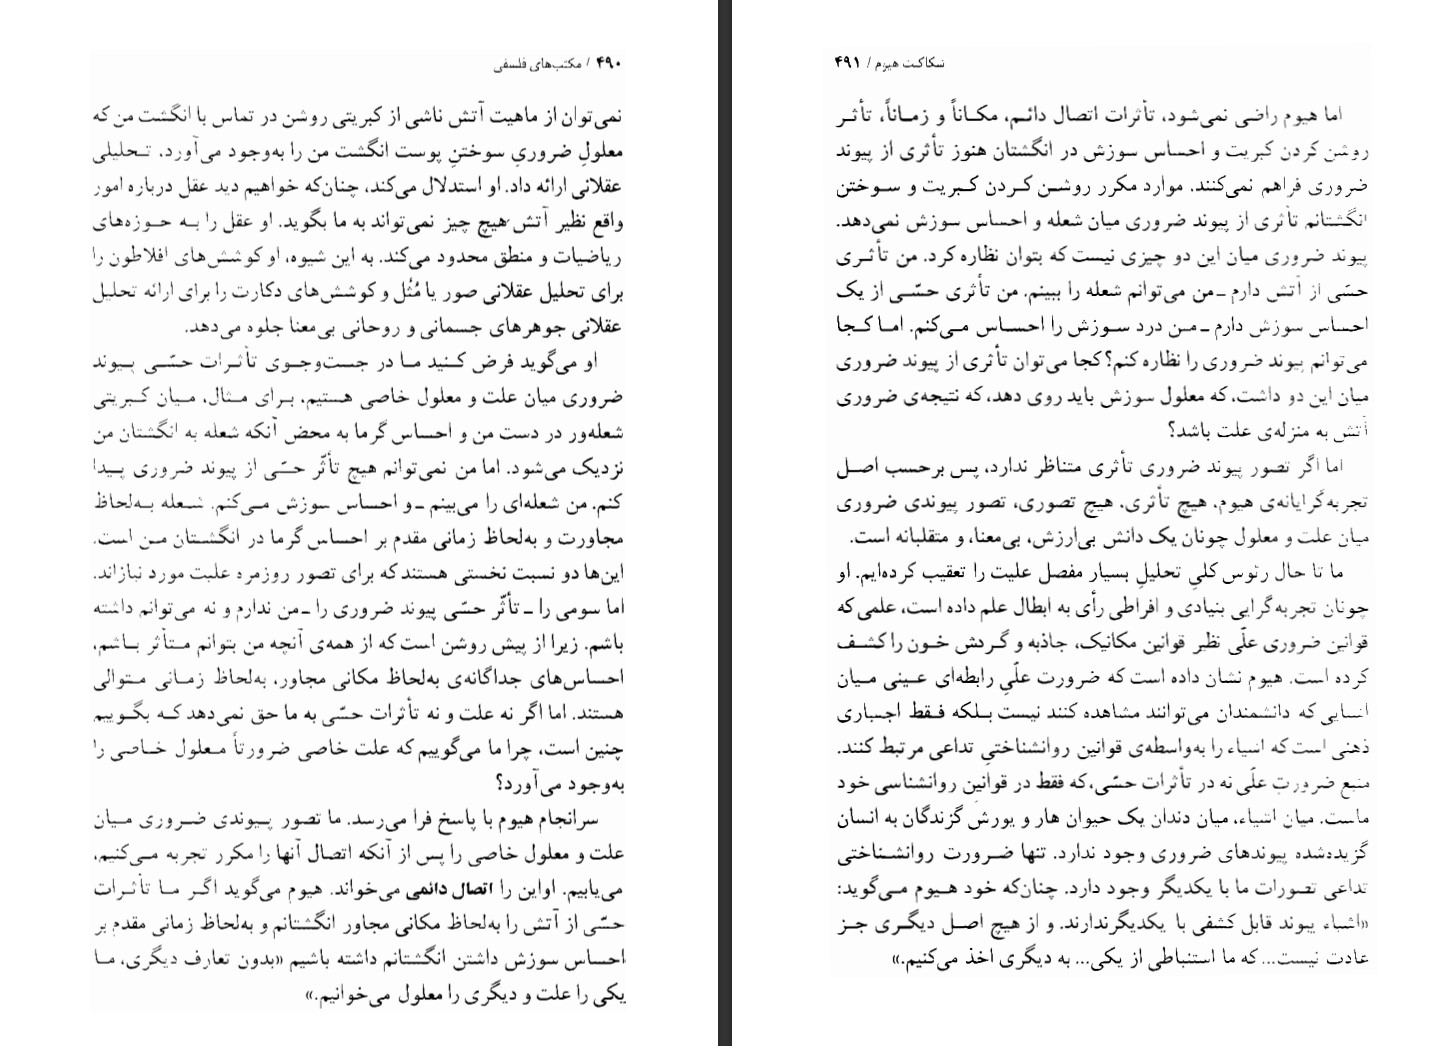 ۴۹۰ / مکتب‌های فلسفی
نمی‌توان از ماهیت آتش ناشی از کبریتی روشن در تماس با انگشت من که
معلولِ ضروریِ سوختنِ پوست انگشت من را به‌وجود می‌آورد، تحلیلی
عقلانی ارائه داد. او استدلال می‌کند، چنان‌که خواهیم دید عقل درباره امور
واقع نظیر آتش هیچ چیز نمی‌تواند به ما بگوید. او عقل را به حوزه‌های
ریاضیات و منطق محدود می‌کند. به این شیوه، او کوشش‌های افلاطون را
برای تحلیل عقلانی صور یا مُثُل و کوشش‌های دکارت را برای ارائه تحلیل
عقلانی جوهرهای جسمانی و روحانی بی‌معنا جلوه می‌دهد.
او می‌گوید فرض کنید ما در جست‌وجوی تأثرات حسّی پیوند
ضروری میان علت و معلول خاصی هستیم، برای مثال، میان کبریتی
شعله‌ور در دست من و احساس گرما به محض آنکه شعله به انگشتان من
نزدیک می‌شود. اما من نمی‌توانم هیچ تأثّر حسّی از پیوند ضروری پیدا
کنم. من شعله‌ای را می‌بینم ـ و احساس سوزش می‌کنم. شعله به‌لحاظ
مجاورت و به‌لحاظ زمانی مقدم بر احساس گرما در انگشتان من است.
این‌ها دو نسبت نخستی هستند که برای تصور روزمره علیت مورد نیازاند.
اما سومی را ـ تأثّر حسّی پیوند ضروری را ـ من ندارم و نه می‌توانم داشته
باشم. زیرا از پیش روشن است که از همه‌ی آنچه من بتوانم متأثر باشم،
احساس‌های جداگانه‌ی به‌لحاظ مکانی مجاور، به‌لحاظ زمانی متوالی
هستند. اما اگر نه علت و نه تأثرات حسّی به ما حق نمی‌دهد که بگوییم
چنین است، چرا ما می‌گوییم که علت خاصی ضرورتاً معلول خاصی را
به‌وجود می‌آورد؟
سرانجام هیوم با پاسخ فرا می‌رسد. ما تصور پیوندی ضروری میان
علت و معلول خاصی را پس از آنکه اتصال آنها را مکرر تجربه می‌کنیم،
می‌یابیم. اواین را اتصال دائمی می‌خواند. هیوم می‌گوید اگر ما تأثرات
حسّی از آتش را به‌لحاظ مکانی مجاور انگشتانم و به‌لحاظ زمانی مقدم بر
احساس سوزش داشتن انگشتانم داشته باشیم «بدون تعارف دیگری، ما
یکی را علت و دیگری را معلول می‌خوانیم.»
شکاکیت هیوم / ۴۹۱
اما هیوم راضی نمی‌شود، تأثرات اتصال دائم، مکاناً و زماناً، تأثر
روشن کردن کبریت و احساس سوزش در انگشتان هنوز تأثری از پیوند
ضروری فراهم نمی‌کنند. موارد مکرر روشن کردن کبریت و سوختن
انگشتانم تأثری از پیوند ضروری میان شعله و احساس سوزش نمی‌دهد.
پیوند ضروری میان این دو چیزی نیست که بتوان نظاره کرد. من تأثری
حسّی از آتش دارم ـ من می‌توانم شعله را ببینم. من تأثری حسّی از یک
احساس سوزش دارم ـ من درد سوزش را احساس می‌کنم. اما کجا
می‌توانم پیوند ضروری را نظاره کنم؟ کجا می‌توان تأثری از پیوند ضروری
میان این دو داشت، که معلول سوزش باید روی دهد، که نتیجه‌ی ضروری
آتش به منزله‌ی علت باشد؟
اما اگر تصور پیوند ضروری تأثری متناظر ندارد، پس برحسب اصل
تجربه‌گرایانه‌ی هیوم، هیچ تأثری، هیچ تصوری، تصور پیوندی ضروری
میان علت و معلول چونان یک دانش بی‌ارزش، بی‌معنا، و متقلبانه است.
ما تا حال رئوس کلیِ تحلیلِ بسیار مفصل علیت را تعقیب کرده‌ایم. او
چونان تجربه‌گرایی بنیادی و افراطی رأی به ابطال علم داده است، علمی که
قوانین ضروری علّی نظیر قوانین مکانیک، جاذبه و گردش خون را کشف
کرده است. هیوم نشان داده است که ضرورت علّیِ رابطه‌ای عینی میان
اشیایی که دانشمندان می‌توانند مشاهده کنند نیست بلکه فقط اجباری
ذهنی است که اشیاء را به‌واسطه‌ی قوانین روانشناختیِ تداعی مرتبط کنند.
منبع ضرورتِ علّی نه در تأثرات حسّی، که فقط در قوانین روانشناسی خود
ماست. میان اشیاء، میان دندان یک حیوان هار و یورش گزندگان به انسان
گزیده‌شده پیوندهای ضروری وجود ندارد. تنها ضرورت روانشناختی
تداعی تصورات ما با یکدیگر وجود دارد. چنان‌که خود هیوم می‌گوید:
«اشیاء پیوند قابل کشفی با یکدیگر ندارند. و از هیچ اصل دیگری جز
عادت نیست... که ما استنباطی از یکی... به دیگری اخذ می‌کنیم.»